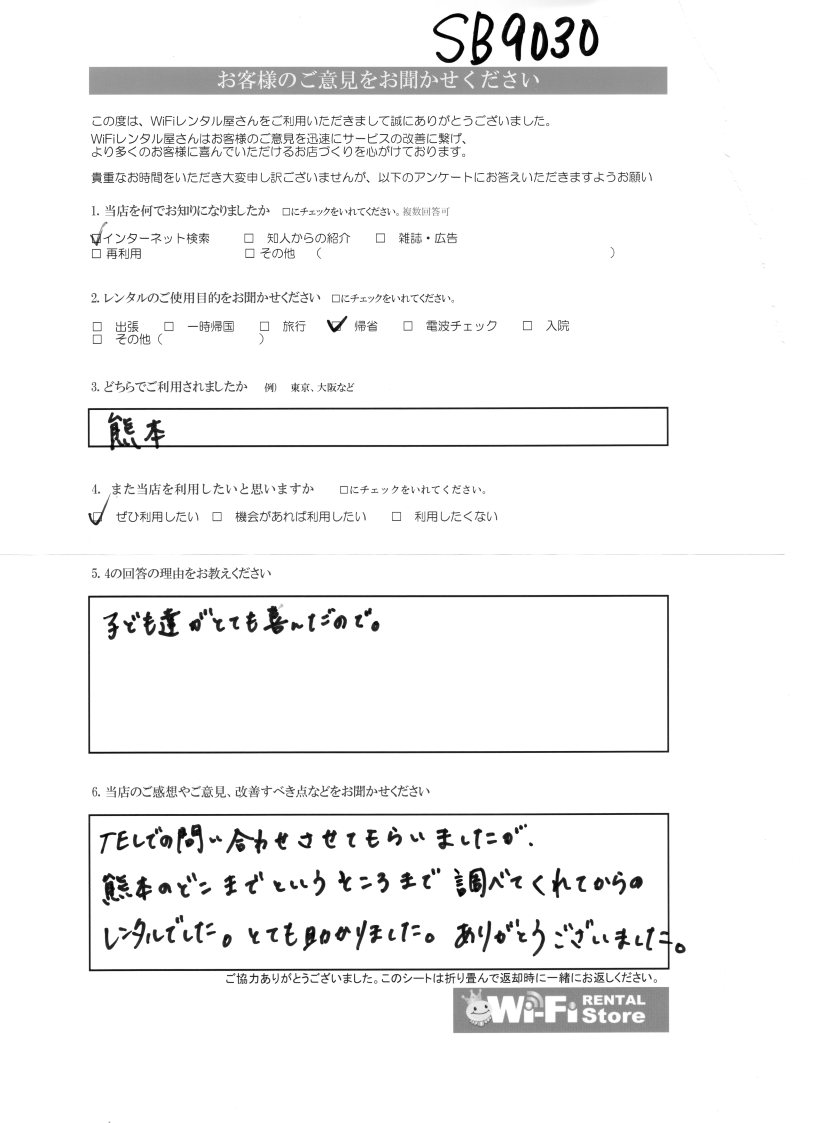 SB9030
お客様のご意見をお聞かせください
この度は、WiFiレンタル屋さんをご利用いただきまして誠にありがとうございました。
WiFiレンタル屋さんはお客様のご意見を迅速にサービスの改善に繋げ、
より多くのお客様に喜んでいただけるお店づくりを心がけております。
貴重なお時間をいただき大変申し訳ございませんが、以下のアンケートにお答えいただきますようお願い
1. 当店を何でお知りになりましたか □にチェックをいれてください。複数回答可
☑インターネット検索 □ 知人からの紹介 □ 雑誌・広告
□ 再利用 □ その他 ( )
2. レンタルのご使用目的をお聞かせください □にチェックをいれてください。
□ 出張 □ 一時帰国 □ 旅行 ☑ 帰省 □ 電波チェック □ 入院
□ その他 ( )
3. どちらでご利用されましたか 例) 東京、大阪など
熊本
4. また当店を利用したいと思いますか □にチェックをいれてください。
☑ ぜひ利用したい □ 機会があれば利用したい □ 利用したくない
5. 4の回答の理由をお教えください
子ども達がとても喜んだので。
6. 当店のご感想やご意見、改善すべき点などをお聞かせください
TELでの問い合わせさせてもらいましたが、
熊本のどこまでというところまで調べてくれてからの
レンタルでした。とても助かりました。ありがとうございました。
ご協力ありがとうございました。このシートは折り畳んで返却時に一緒にお返しください。
Wi-Fi RENTAL Store